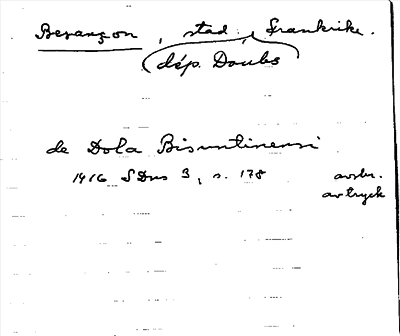 Besançon, stad, Frankrike.
dép. Doubs
de Dola Bisuntinensi
1416 SDns 3, s. 178 avskr.
avtryck